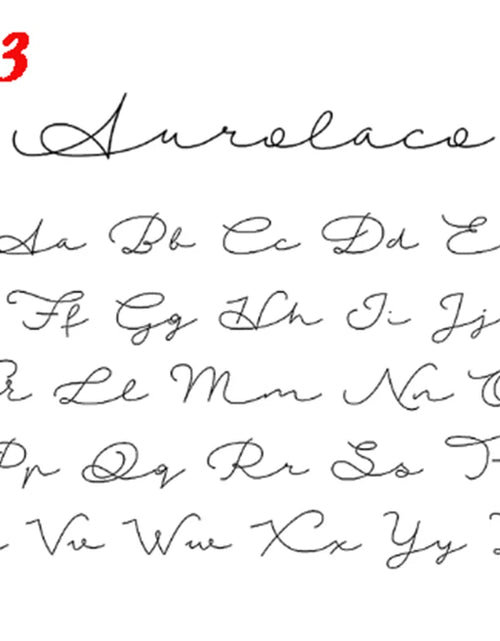 3
Aurolaco
Aa Bb Cc Dd E
Ff Gg Hh Ii Jj
Ll Mm Nn O
Pp Qq Rr Ss T
Vv Ww Xx Yy